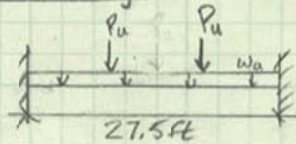 Pu Pu
wu
27.5ft